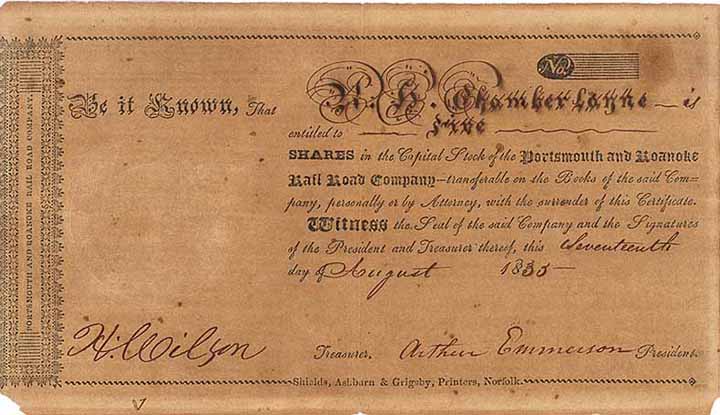 PORTSMOUTH AND ROANOKE RAIL ROAD COMPANY.
No.
Be it Known, That N. H. Chamberlayne is
entitled to Five
SHARES in the Capital Stock of the Portsmouth and Roanoke
Rail Road Company—transferable on the Books of the said Com-
pany, personally or by Attorney, with the surrender of this Certificate.
Witness the Seal of the said Company and the Signatures
of the President and Treasurer thereof, this Seventeenth
day of August 1835
H. Wilson Treasurer. Arthur Emmerson President.
Shields, Ashburn & Grigsby, Printers, Norfolk.